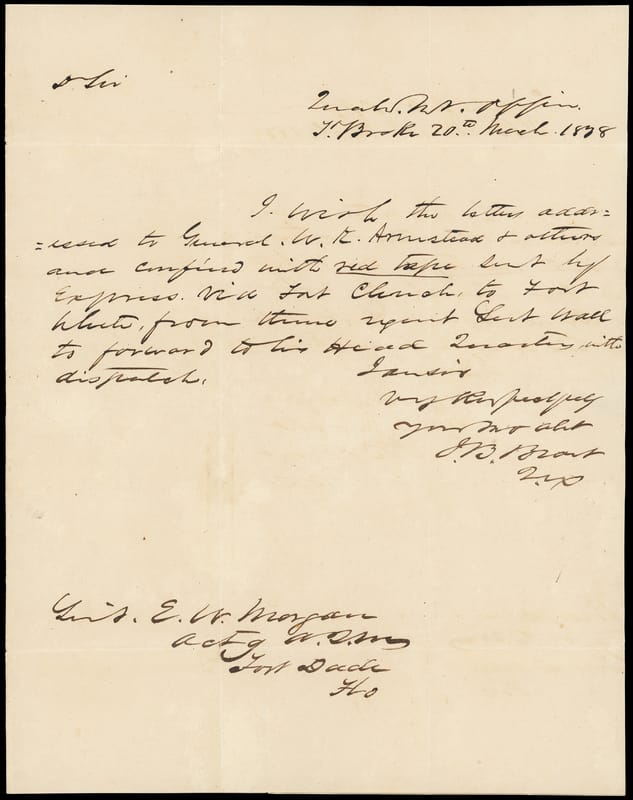 Dr Sir
Quat. Mr. Office.
Ft. Brooke 20.th March. 1838
I. wish the letters addr=
=essed to General. W. K. Armstead & others
and confined with red tape sent by
Express. Via Fort Clinch, to Fort
White, from thence request Lieut Wall
to forward to his Head Quarters, with
dispatch.
I am sir
Very Respectfully
Your Mo obt
J. B. Brant
Lieut. E. W. Morgan
Actg A. Q. M
Fort Dade
Flo